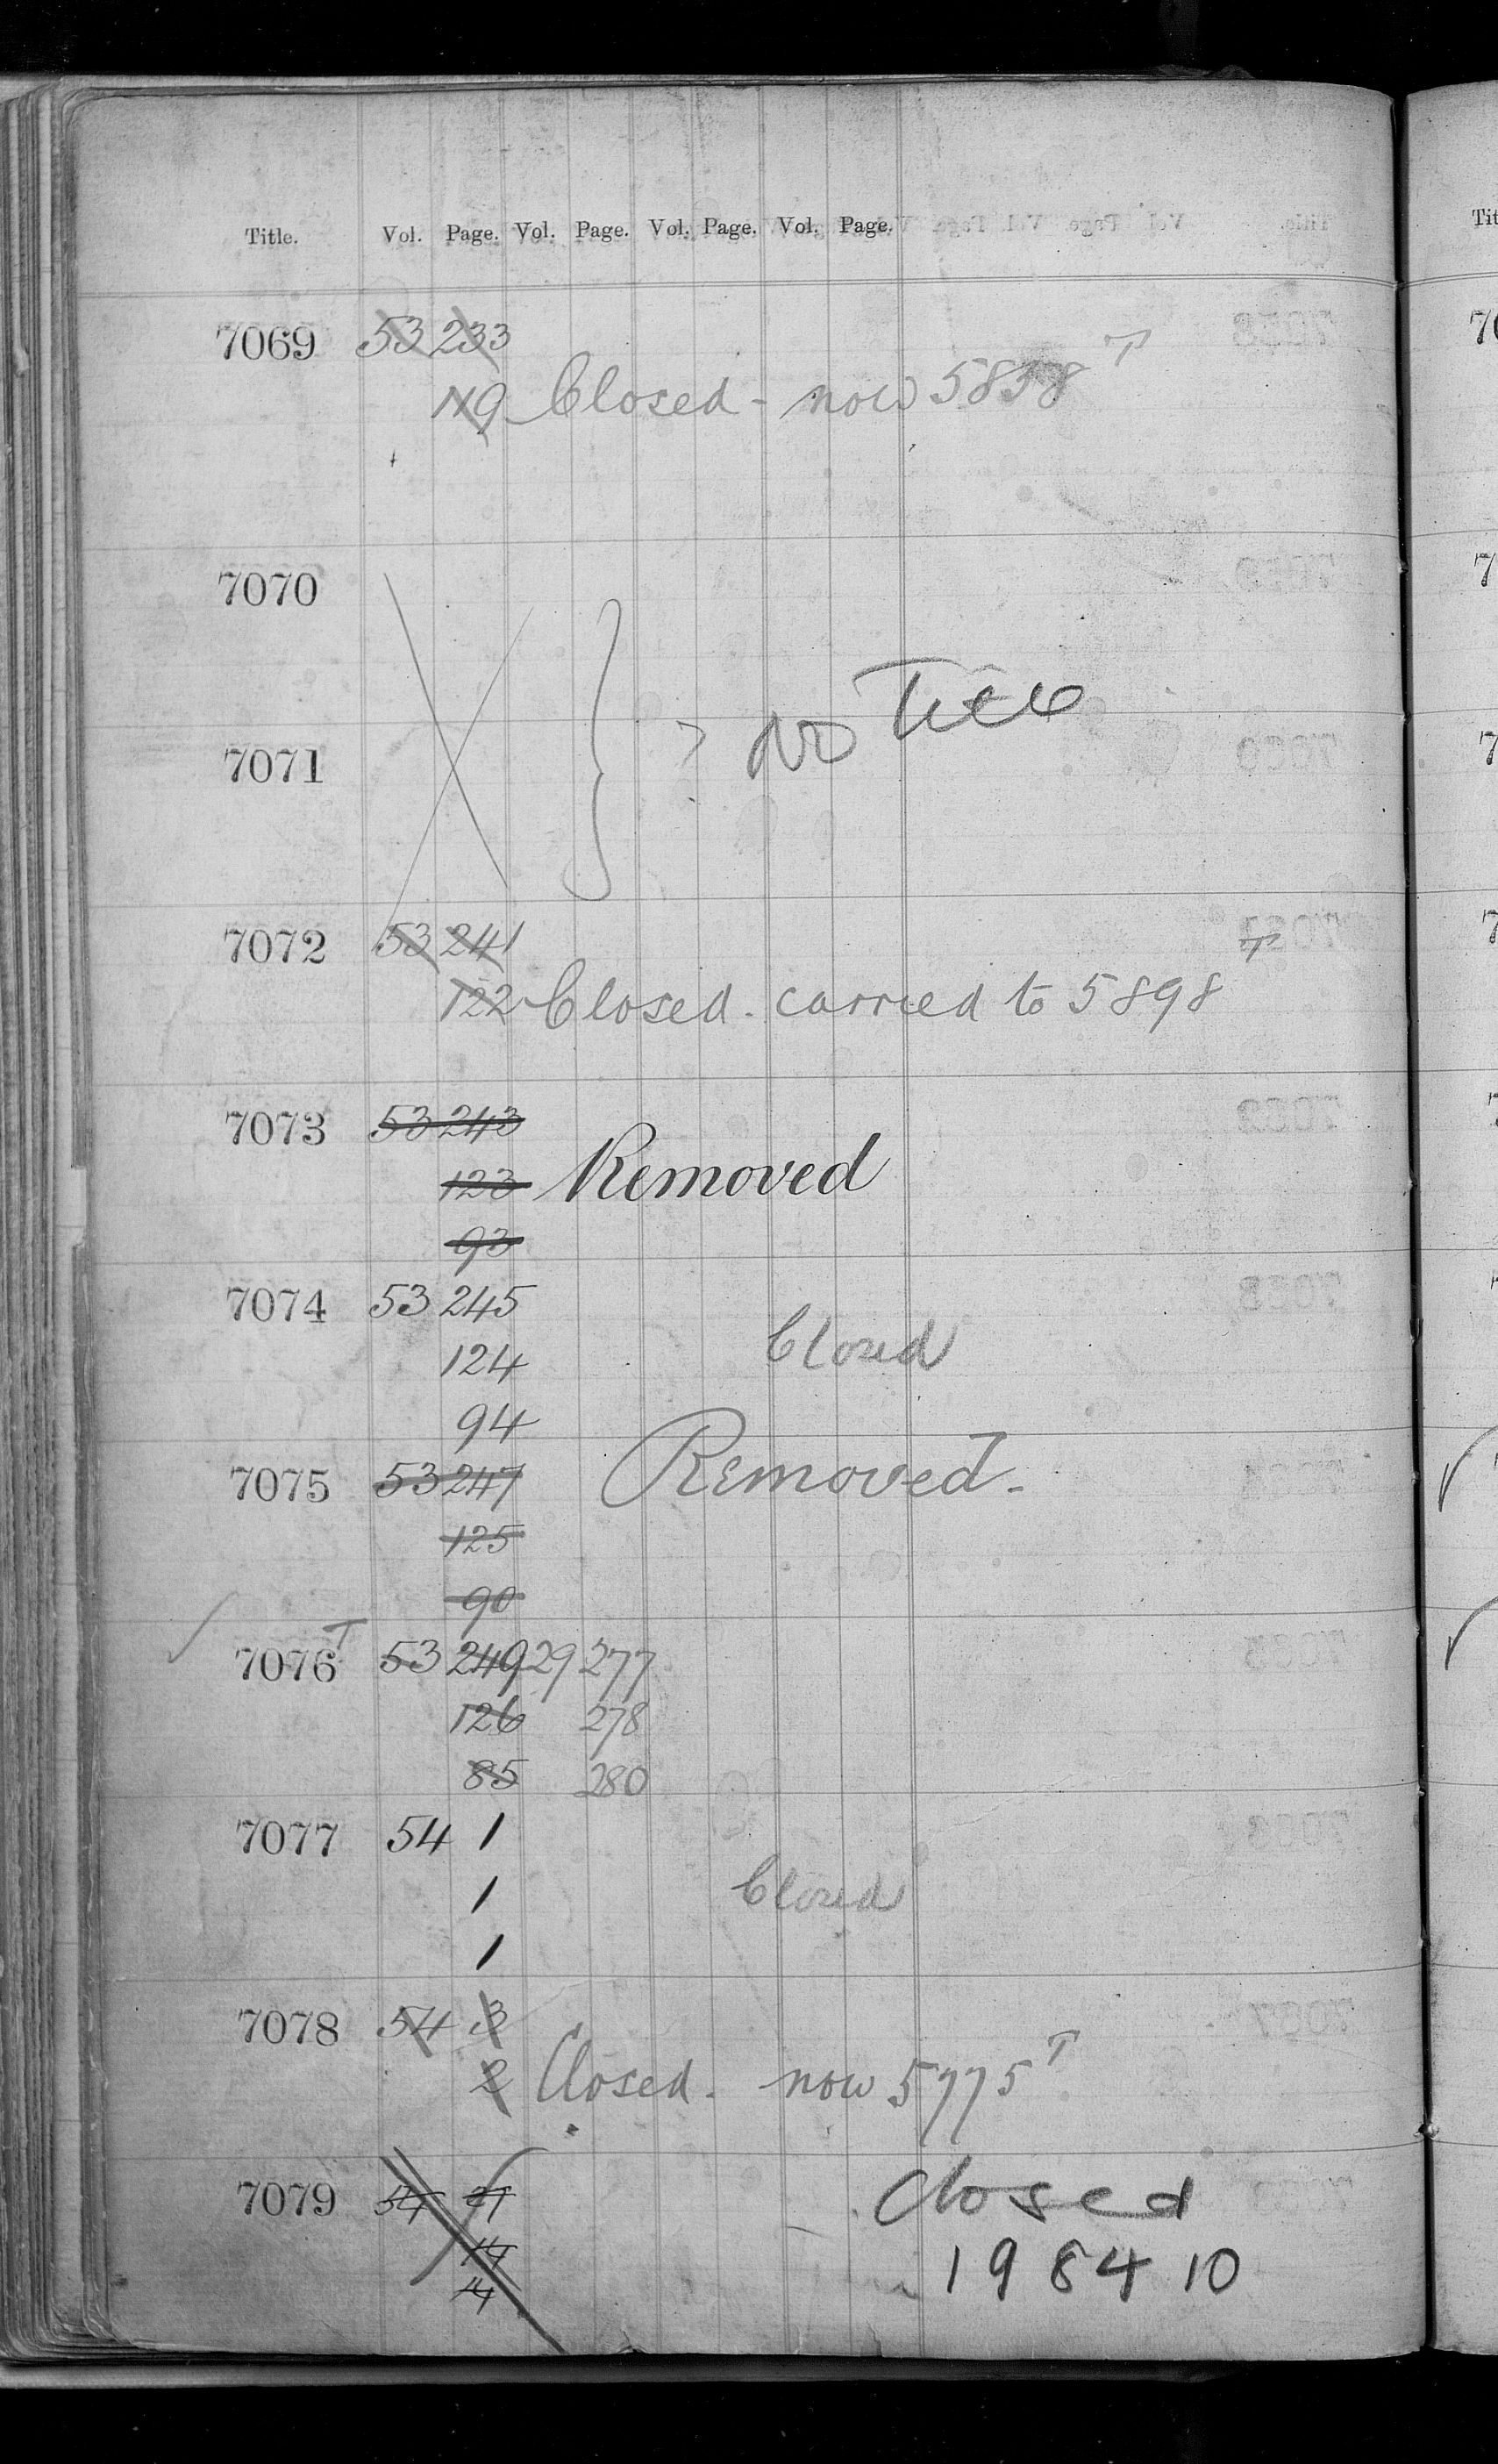 Title. Vol. Page. Vol. Page. Vol. Page. Vol. Page.
7069 53 233
119 Closed - now 5858 T
7070
? No Title
7071
7072 53 241
122 Closed. carried to 5898 T
7073 53 243
123 Removed
93
7074 53 245
124 Closed
94
7075 53 247 Removed.
125
90
7076 T 53 249 29 277
126 278
85 280
7077 54 1
1 Closed
1
7078 54 3
2 Closed. now 5775 T
7079 54 Closed
14 198410
14